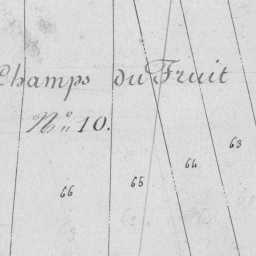 Champs du Fruit
No 10.
63
64
65
66